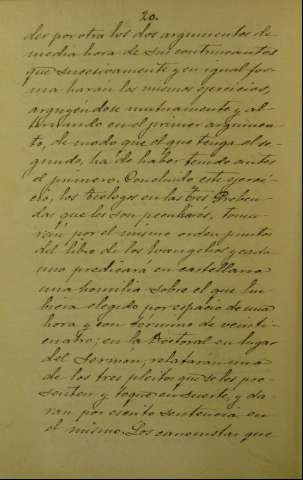 20.
der por otra los dos argumentos de
media hora de sus contrincantes
que sucesivamente y en igual for-
ma harán los mismos ejercicios,
arguyéndose mutuamente y al-
ternando en el primer argumen-
to, de modo que el que tenga el se-
gundo, ha de haber tenido antes
el primero. Concluido este ejerci-
cio, los teólogos en las tres Preben-
das que les son peculiares, toma-
rán por el mismo orden puntos
del libro de los Evangelios y cada
uno predicará en castellano
una homilia sobre el que hu-
biera elegido por espacio de una
hora y con término de veinti-
cuatro; en la Doctoral en lugar
del sermon, relatarán uno
de los tres pleitos que se les pre-
senten y toque en suerte, y da-
ran por escrito sentencia en
el mismo. Los canonistas que